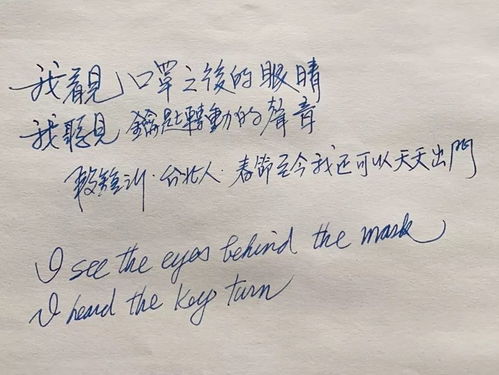 我看見口罩之後的眼睛
我聽見鑰匙轉動的聲音
台北人．春節至今我还可以天天出門
I see the eyes behind the mask
I heard the key turn